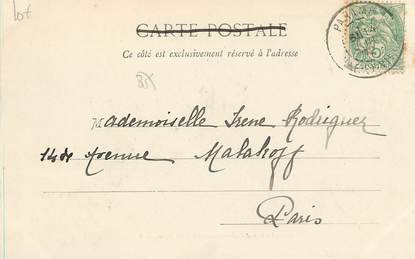 lot
CARTE POSTALE
Ce côté est exclusivement réservé à l'adresse
Mademoiselle Irene Rodriguez
Avenue Malakoff
Paris